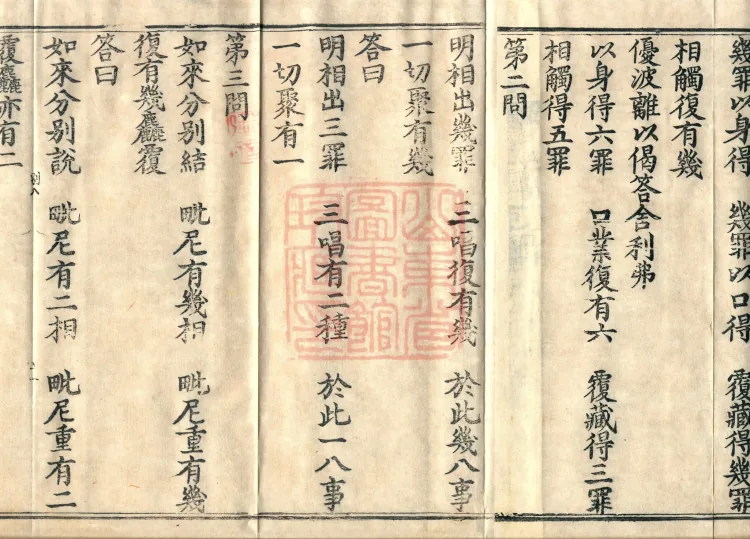 幾罪以身得　幾罪以口得　覆藏得幾罪
相觸復有幾
優波離以偈答舍利弗
以身得六罪　口業復有六　覆藏得三罪
相觸得五罪
第二問
明相出幾罪　三唱復有幾　於此幾八事
一切聚有幾
答曰
明相出三罪　三唱有二種　於此一八事
一切聚有一
第三問
如來分別結　毗尼有幾相　毗尼重有幾
復有幾麤覆
答曰
如來分別說　毗尼有二相　毗尼重有二
覆麤亦有二